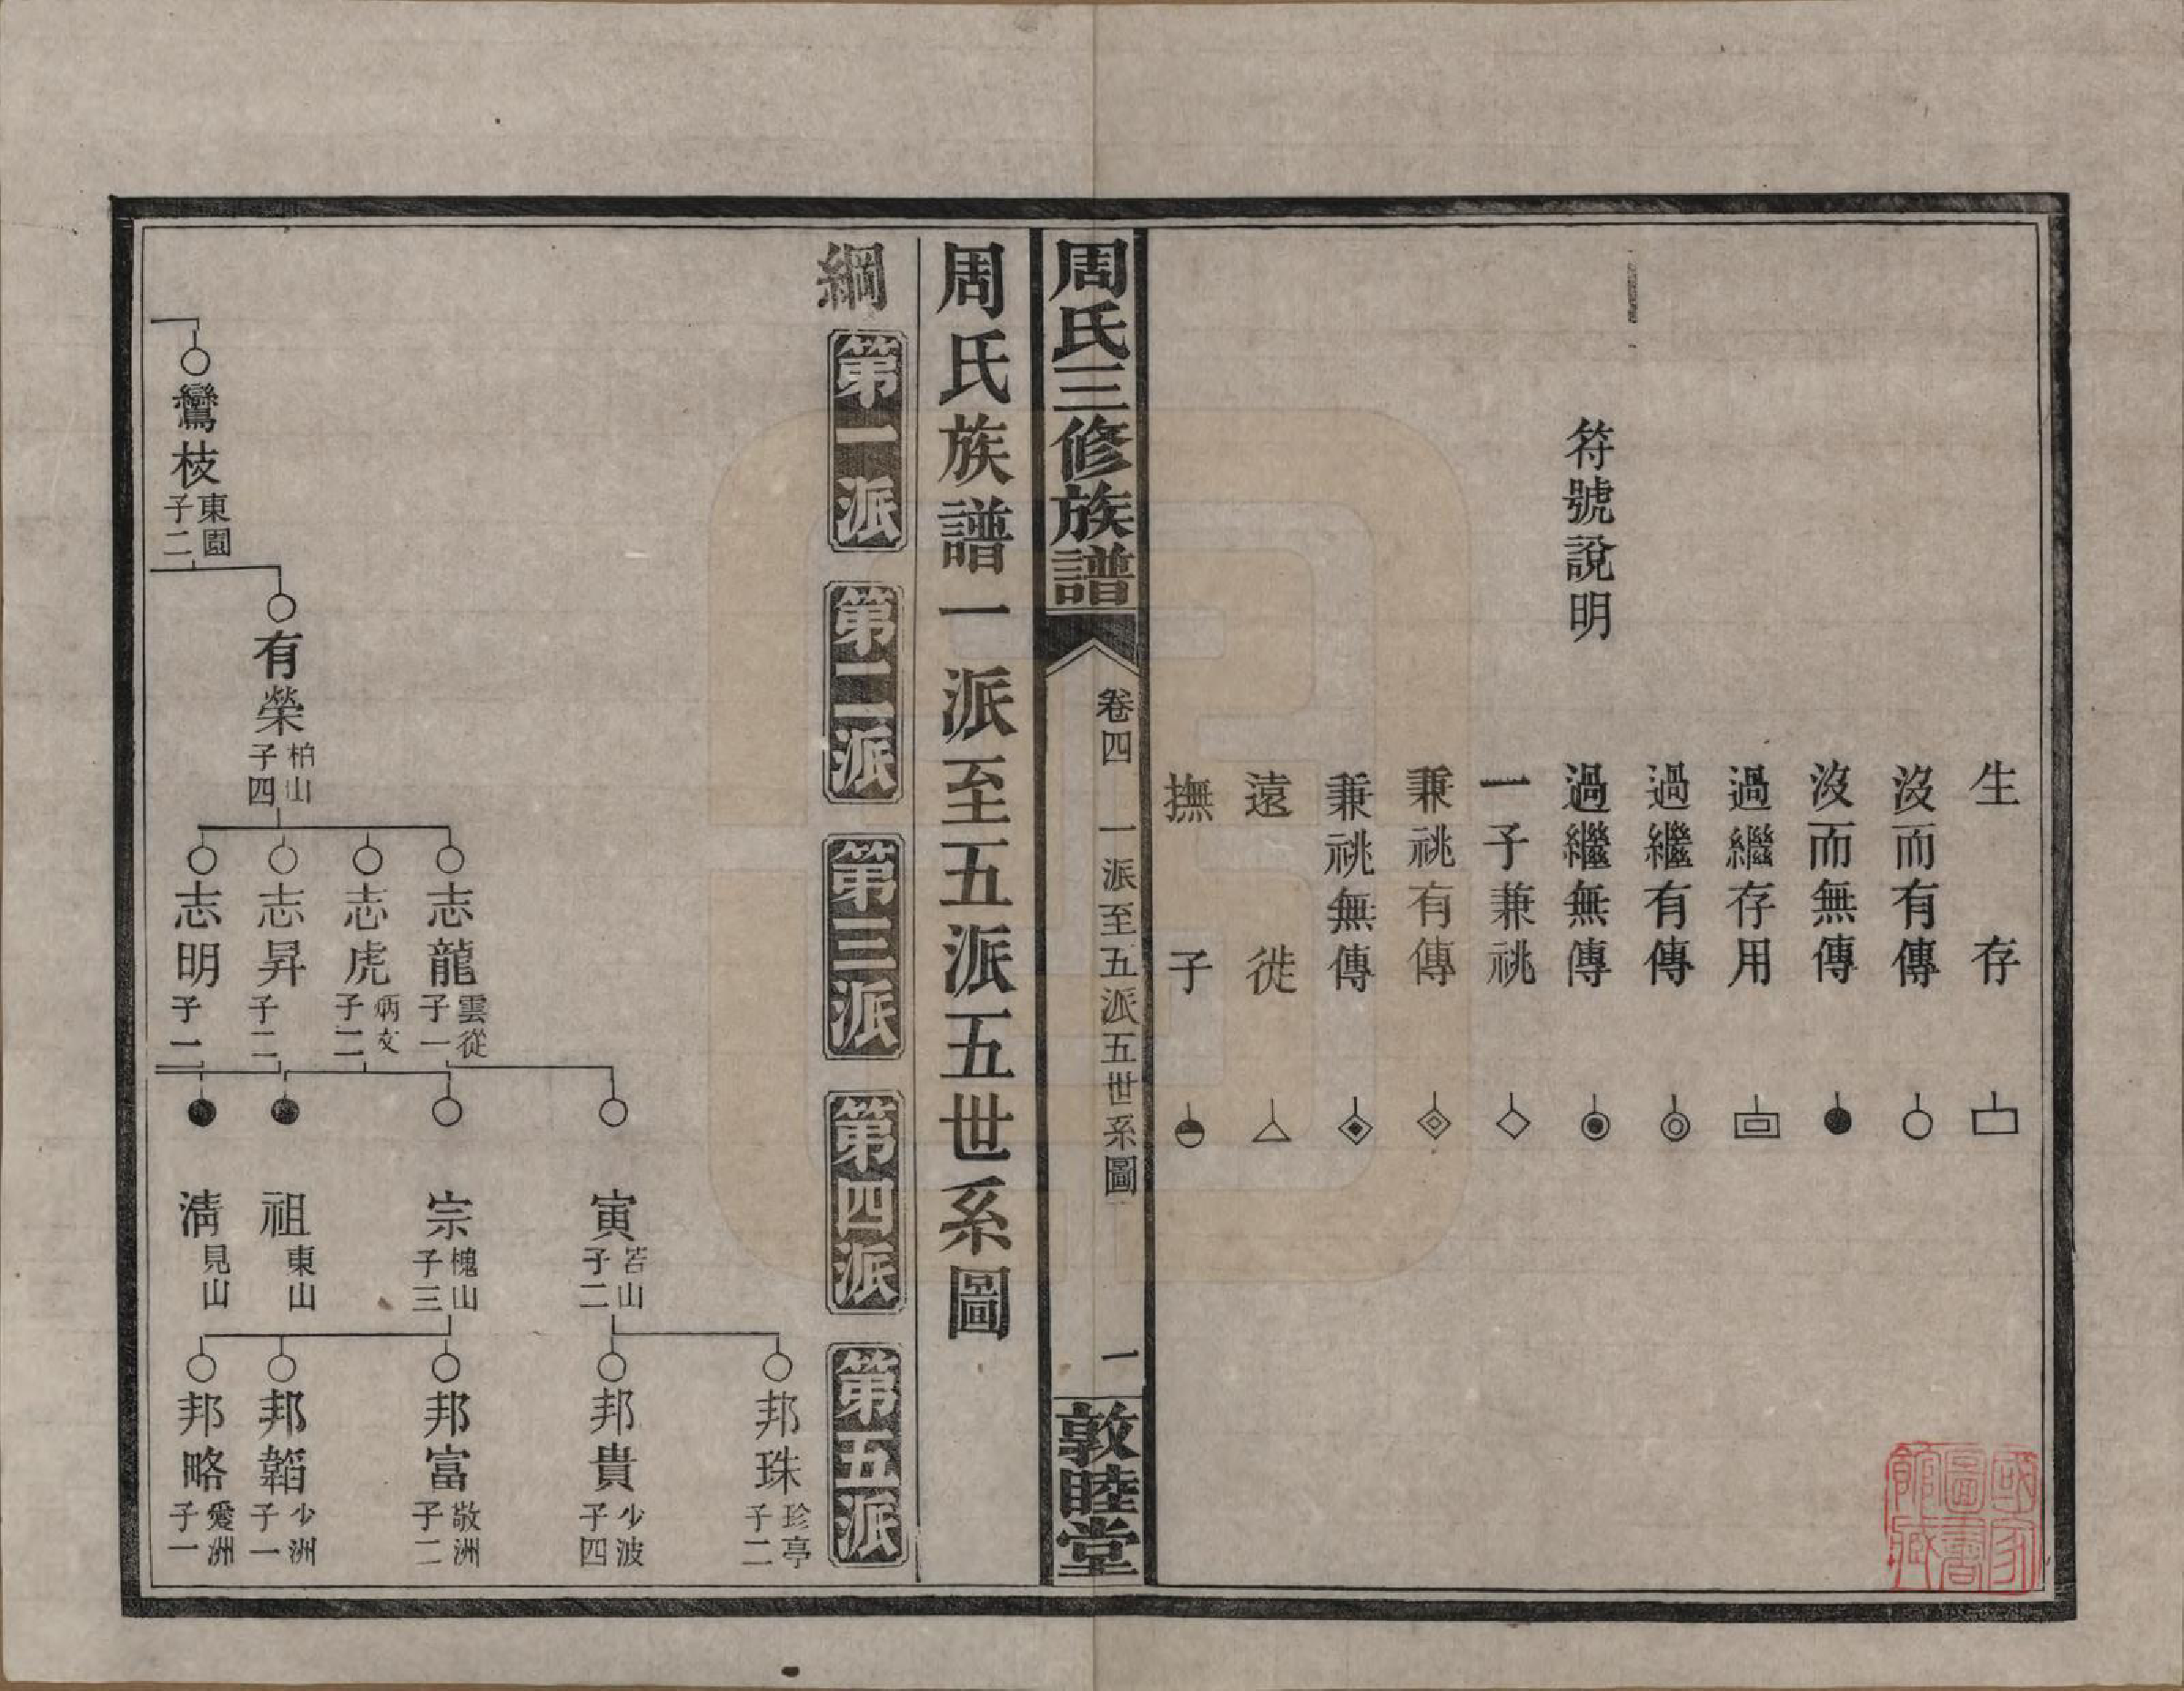 符號說明
生存
沒而有傳
沒而無傳
過繼存用
過繼有傳
過繼無傳
一子兼祧
兼祧有傳
兼祧無傳
遠徙
撫子
國家
圖書
館藏
周氏三修族譜
卷四
一派至五派五世系圖
一
敦睦堂
周氏族譜一派至五派五世系圖
綱
第一派
第二派
第三派
第四派
第五派
鸞枝
東園
子二
有榮
柏山
子四
志龍
雲從
子一
志虎
炳文
子二
志昇
子二
志明
子一
寅
若山
子二
宗
槐山
子三
祖
東山
清
見山
邦珠
珍亭
子二
邦貴
少波
子四
邦富
敬洲
子二
邦韜
少洲
子一
邦略
愛洲
子一